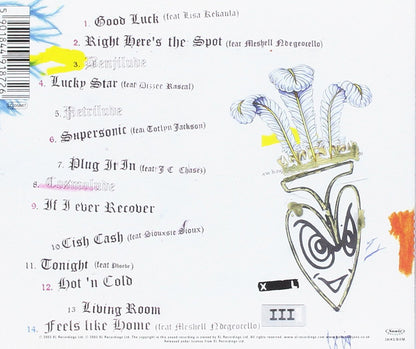 1. Good Luck (feat Lisa Kekaula)
2. Right Here's the Spot (feat Meshell Ndegeocello)
3. Benjilude
4. Lucky Star (feat Dizzee Rascal)
5. Petrilude
6. Supersonic (feat Totlyn Jackson)
7. Plug It In (feat J C Chasez)
8. Cozmolude
9. If I ever Recover
10 Cish Cash (feat Siouxsie Sioux)
11. Tonight (feat Phoebe)
12. Hot 'n Cold
13 Living Room
14. Feels like Home (feat Meshell Ndegeocello)
X L
III
5 901844 918726